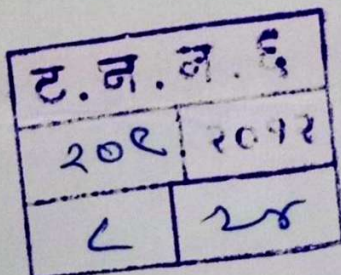 ट.न.न.६
२०९ २०१२
८ २४